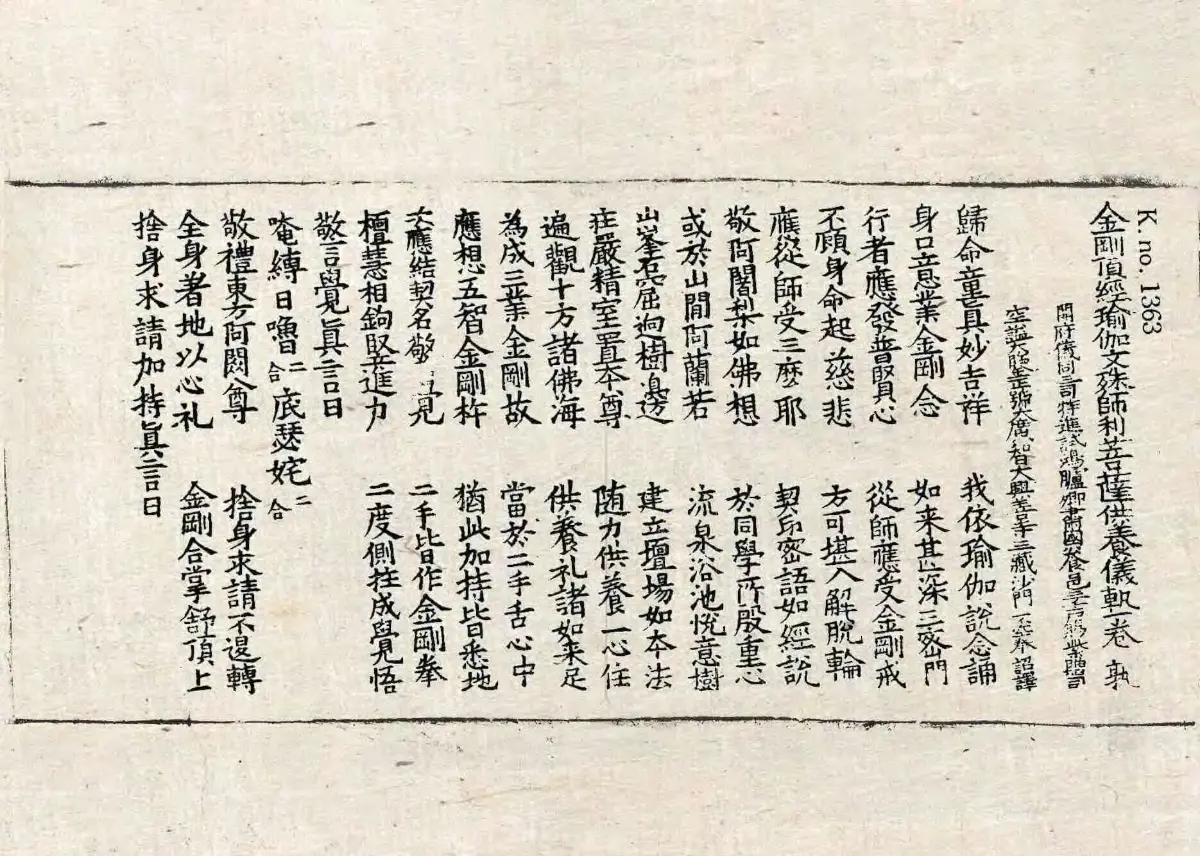 K no. 1363
金剛頂經瑜伽文殊師利菩薩供養儀軌一卷 孰
開府儀同三司特進試鴻臚卿肅國公食邑三千戶賜紫贈司
空謚大鑒正號大廣智大興善寺三藏沙門不空奉 詔譯
歸命童真妙吉祥 我依瑜伽說念誦
身口意業金剛念 如来甚深三密門
行者應發普賢心 從師應受金剛戒
不顧身命起慈悲 方可堪入解脫輪
應從師受三麽耶 契印密語如經說
敬阿闍梨如佛想 於同學所殷重心
或於山閒阿蘭若 流泉浴池悅意樹
山峯石窟迥樹邊 建立壇場如本法
莊嚴精室置本尊 随力供養一心住
遍觀十方諸佛海 供養礼諸如来足
為成三業金剛故 當於二手舌心中
應想五智金剛杵 猶此加持皆悉地
次應結契名警覺 二手皆作金剛拳
檀慧相鉤竪進力 二度側拄成覺悟
敬言覺真言曰
唵縛日嚕二合底瑟姹二合
敬禮東方阿閦尊 捨身求請不退轉
全身著地以心礼 金剛合掌舒頂上
捨身求請加持真言曰